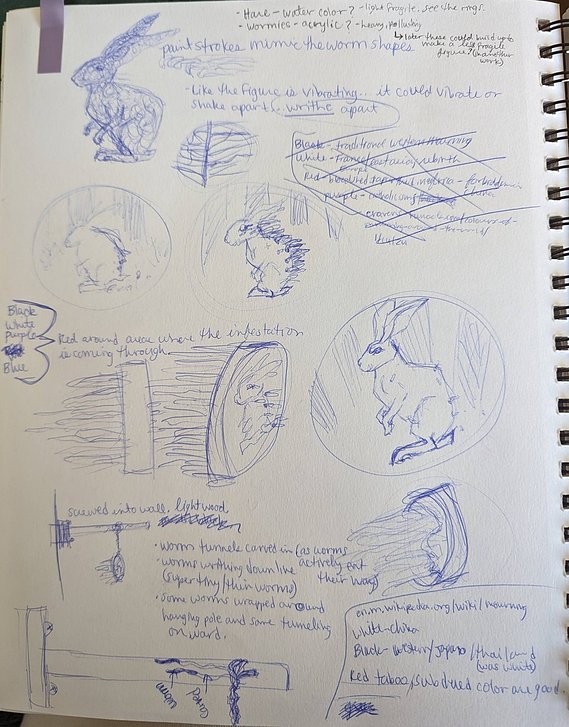 - Hare - water color? - light, fragile, see the rings.
- wormies - acrylic? - heavy, polluting
↳ later these could build up to
make a less fragile
figure? (in another
work)
paint strokes mimic the worm shapes
- Like the figure is vibrating... it could vibrate or
shake apart... writhe apart
Black - traditional western mourning
White -
Red -
purple -
Black
White
Purple
Blue
Red around area where the infestation
is coming through.
screwed into wall. light wood
• worm tunnels carved in (as worms
actively eat
their way)
• worms writhing down line
(super tiny/thin worms)
• some worms wrapped around
hanging pole and some tunneling
on ward.
worm
carved
en.m.wikipedia.org/wiki/mourning
White - China
Black - Western/Japan/thailand
(was white)
Red taboo, subdued color are good.